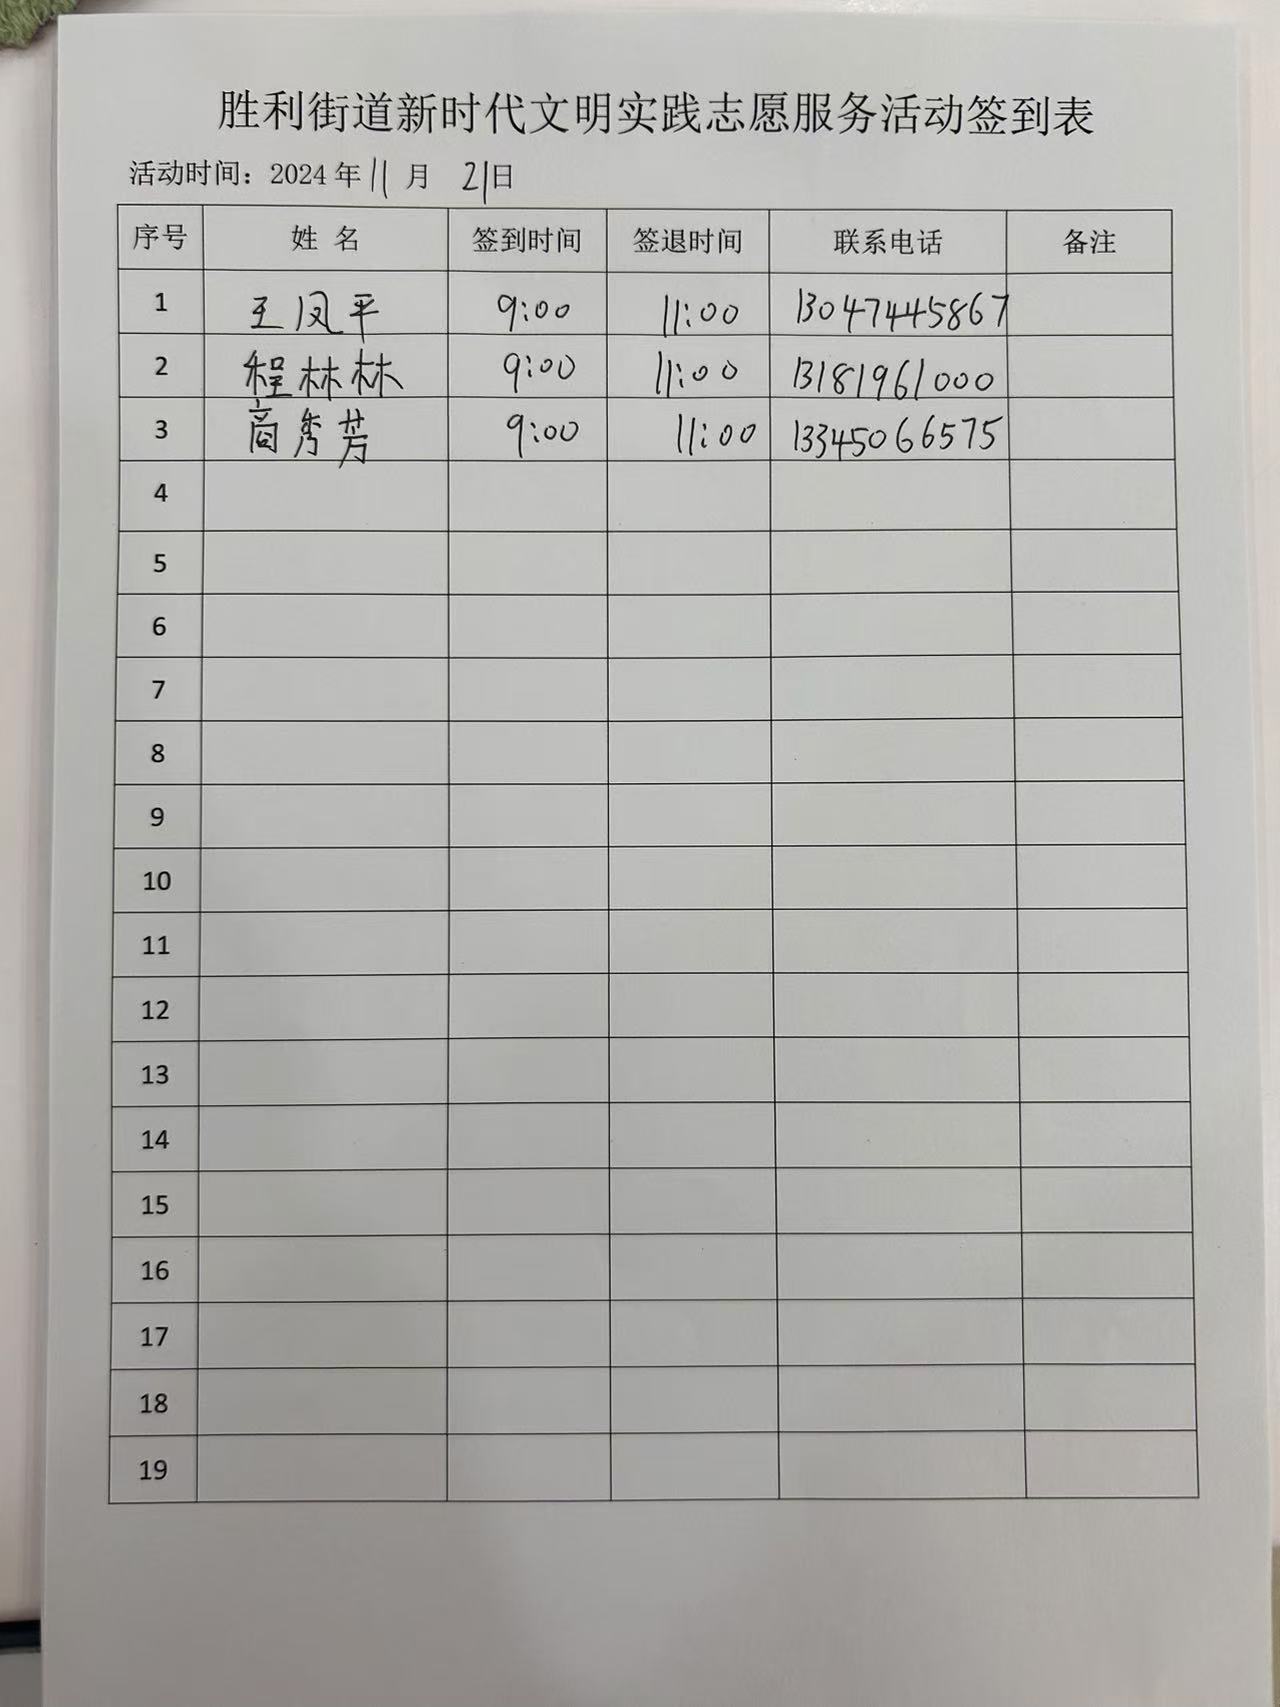 胜利街道新时代文明实践志愿服务活动签到表
活动时间：2024年11月 21日
序号 姓 名 签到时间 签退时间 联系电话 备注
1 王凤平 9:00 11:00 13047445867
2 程林林 9:00 11:00 13181961000
3 商秀芳 9:00 11:00 13345066575
4
5
6
7
8
9
10
11
12
13
14
15
16
17
18
19